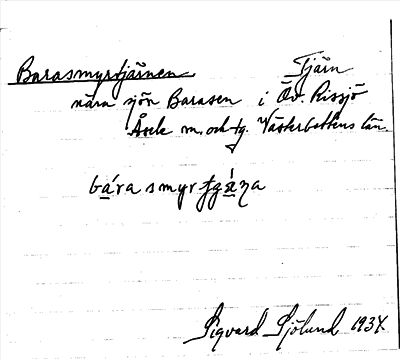 Barasmyrtjärnen Tjärn
nära sjön Barasen i Öv. Rissjö
Åsele m. och tg. Västerbottens län.
bárasmyrtgánа
Sigvard Sjölund 1934